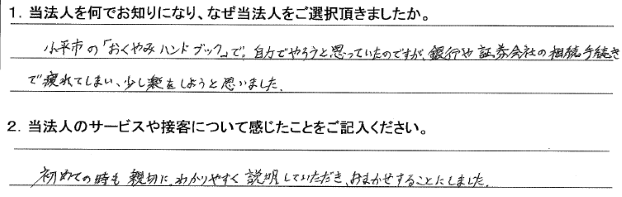 1. 当法人を何でお知りになり、なぜ当法人をご選択頂きましたか。
小平市の「おくやみハンドブック」で。自力でやろうと思っていたのですが、銀行や証券会社の相続手続き
で疲れてしまい、少し楽をしようと思いました。
2. 当法人のサービスや接客について感じたことをご記入ください。
初めての時も親切に、わかりやすく説明していただき、おまかせすることにしました。